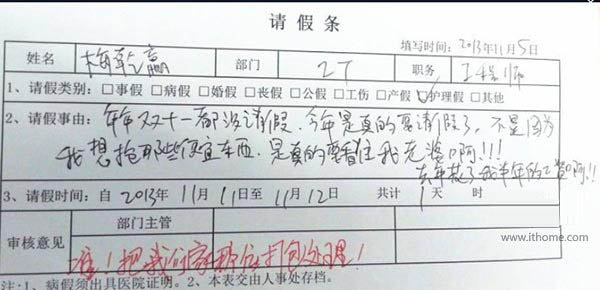 请假条
填写时间: 2013年11月5日
姓名 梅乾赢 部门 IT 职务 工程师
1、请假类别: □事假 □病假 □婚假 □丧假 □公假 □工伤 □产假 ☑护理假 □其他
2、请假事由: 年年双十一都没请假,今年是真的要请假了,不是因为
我想抢那些便宜东西,是真的要看住我老婆啊!!!
去年花了我半年的工资啊!!
3、请假时间: 自 2013年 11月 11日至 11月 12日 共计 1天 时
部门主管
审核意见
准!把我们家那位打包处理!
注: 1、病假须出具医院证明。2、本表交由人事处存档。
www.ithome.com